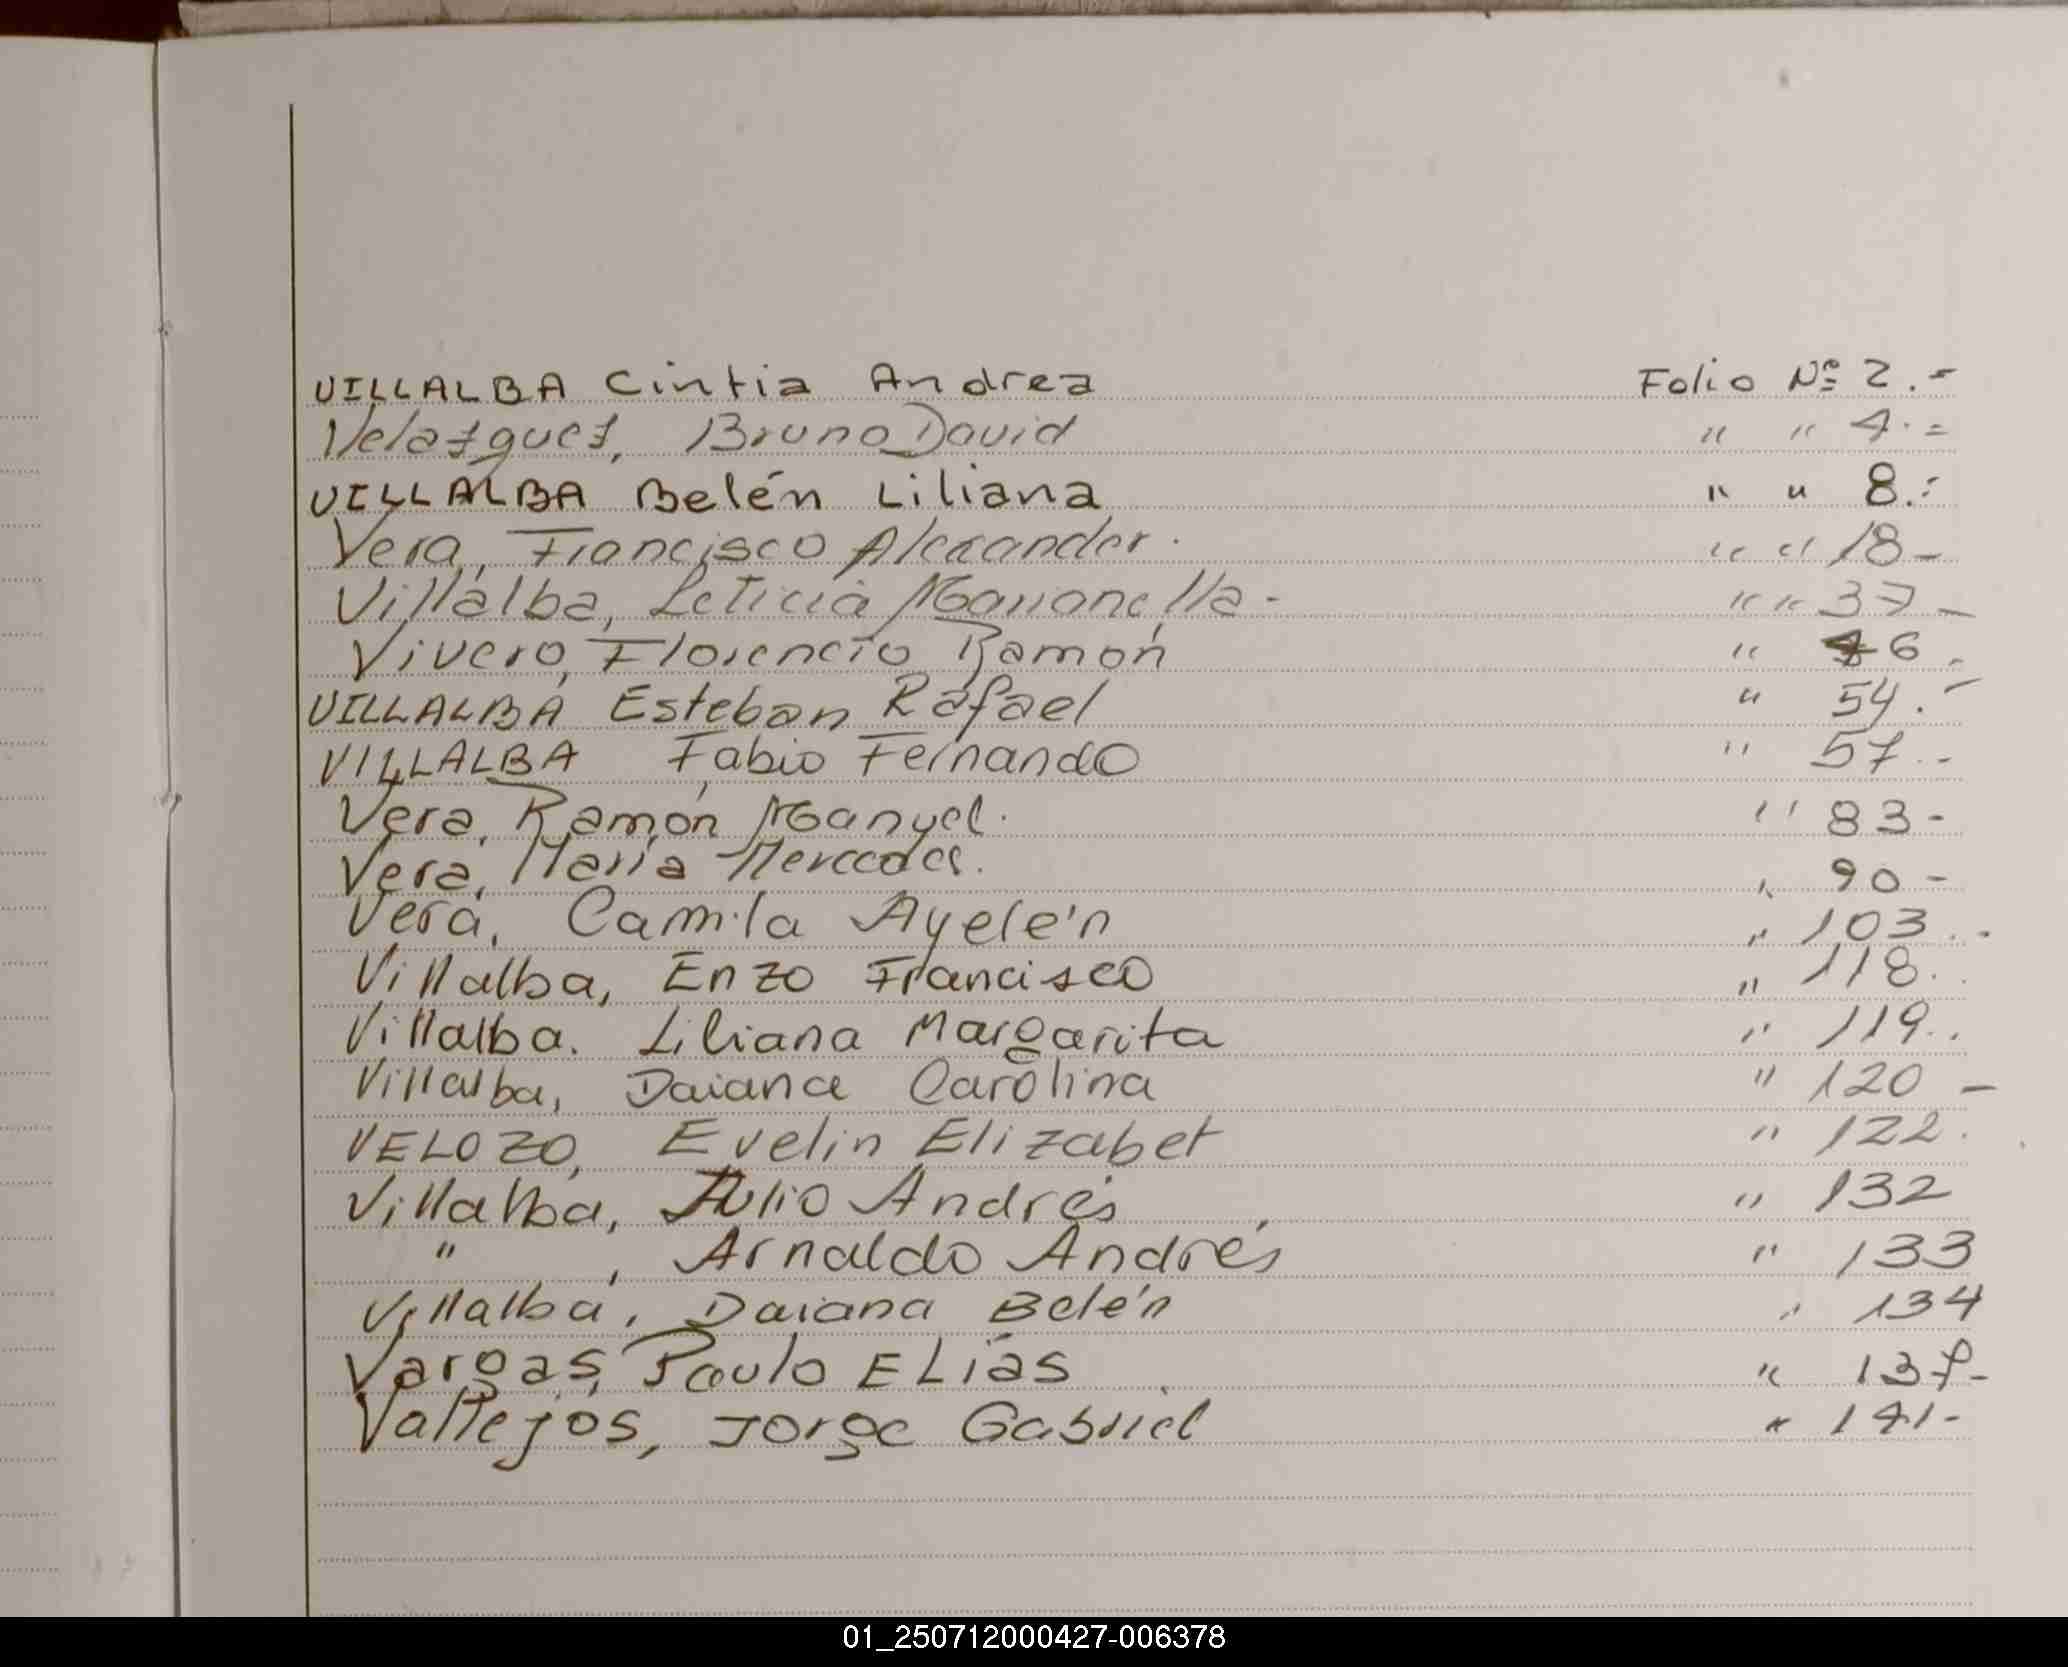 VILLALBA Cintia Andrea Folio Nº 2.-
Velazquez, Bruno David " " 4.=
VILLALBA Belén Liliana " " 8.-
Vera, Francisco Alexander. " " 18-
Villalba, Leticia Marianella- " " 37-
Vivero, Florencio Ramón " 46.-
VILLALBA Esteban Rafael " 54.-
VILLALBA Fabio Fernando " 57.-
Vera, Ramón Manuel. " 83-
Vera, María Mercedes. " 90-
Vera, Camila Ayelén " 103.-
Villalba, Enzo Francisco " 118.
Villalba. Liliana Margarita " 119..
Villalba, Daiana Carolina " 120-
VELOZO, Evelin Elizabet " 122.
Villalba, Julio Andrés " 132
" , Arnaldo Andrés " 133
Villalba, Daiana Belén " 134
Vargas, Paulo ELías " 137-
Vallejos, Jorge Gabriel " 141-
01_250712000427-006378